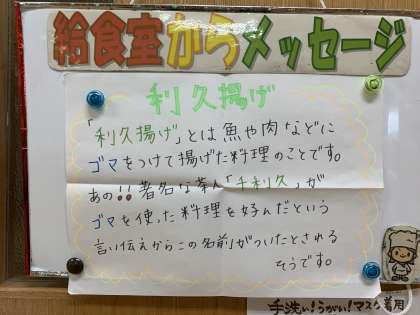 給食室からメッセージ
利久揚げ
「利久揚げ」とは魚や肉などに
ゴマをつけて揚げた料理のことです。
あの!!著名な茶人「千利久」が
ゴマを使った料理を好んだという
言い伝えからこの名前がついたとされる
そうです。
手洗い!うがい!マスク着用